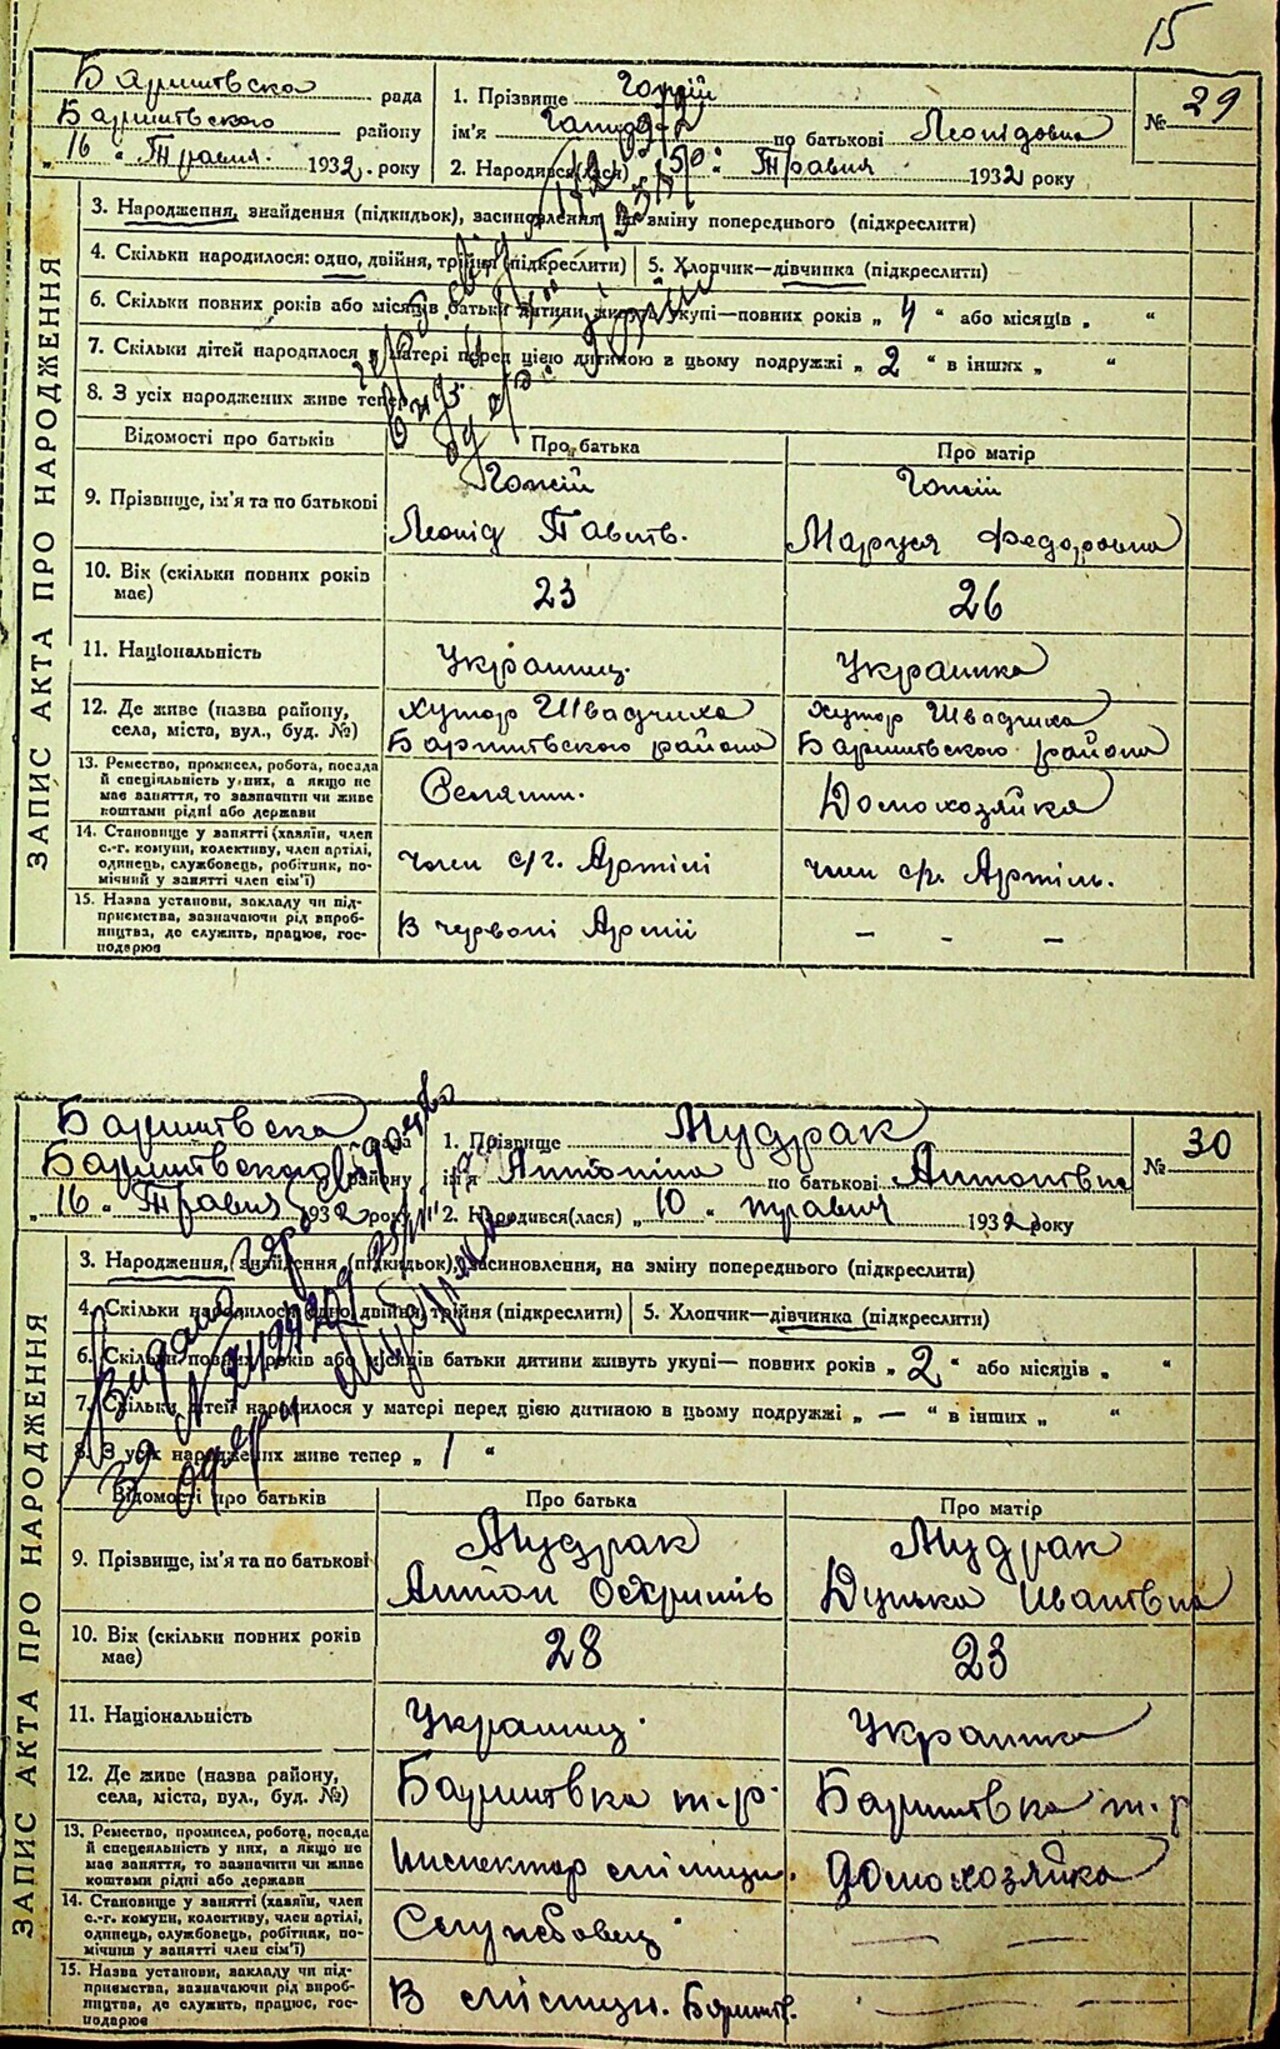 15
Баришівська рада
Баришівського району
„ 16 “ Травня 1932. року
1. Прізвище
ім'я по батькові Леонідовна
2. Народився(лася) Травня 1932 року
№ 29
ЗАПИС АКТА ПРО НАРОДЖЕННЯ
3. Народження, знайдення (підкидьок), засиновлення, на зміну попереднього (підкреслити)
4. Скільки народилося: одно, двійня, трійня (підкреслити) 5. Хлопчик—дівчинка (підкреслити)
6. Скільки повних років або місяців батьки дитини живуть укупі—повних років „ 4 “ або місяців „ “
7. Скільки дітей народилося у матері перед цією дитиною в цьому подружжі „ 2 “ в інших „ “
8. З усіх народжених живе тепер
Відомості про батьків Про батька Про матір
9. Прізвище, ім'я та по батькові
Леонід Павлів. Маруся Федоровна
10. Вік (скільки повних років має) 23 26
11. Національність Українец. Українка
12. Де живе (назва району, села, міста, вул., буд. №)
хутор Швадчиха хутор Швадчиха
Баришівського района Баришівського района
13. Ремество, промисел, робота, посада й спеціяльність у них, а якщо не має заняття, то зазначити чи живе коштами рідні або держави
Селянин. Домохозяйка
14. Становище у занятті (хазяїн, член с.-г. комуни, колективу, член артілі, одинець, службовець, робітник, помічний у занятті член сім'ї)
член с/г. Артілі член с/г. Артіль.
15. Назва установи, закладу чи підприємства, зазначаючи рід виробництва, де служить, працює, господарює
В червоні Армії – – –
Баришівська рада
Баришівського району
„ 16 “ Травня 1932 року
1. Прізвище Мудрак
ім'я Антоніна по батькові Антонівна
2. Народився(лася) „ 10 “ травня 1932 року
№ 30
ЗАПИС АКТА ПРО НАРОДЖЕННЯ
3. Народження, знайдення (підкидьок), засиновлення, на зміну попереднього (підкреслити)
4. Скільки народилося: одно, двійня, трійня (підкреслити) 5. Хлопчик—дівчинка (підкреслити)
6. Скільки повних років або місяців батьки дитини живуть укупі— повних років „ 2 “ або місяців „ “
7. Скільки дітей народилося у матері перед цією дитиною в цьому подружжі „ — “ в інших „ “
8. З усіх народжених живе тепер „ 1 “
Відомості про батьків Про батька Про матір
9. Прізвище, ім'я та по батькові
Мудрак Мудрак
Антон Іванівна
10. Вік (скільки повних років має) 28 23
11. Національність Українец. Українка
12. Де живе (назва району, села, міста, вул., буд. №)
Баришівка т.р. Баришівка т.р
13. Ремество, промисел, робота, посада й спецеяльність у них, а якщо не має заняття, то зазначити чи живе коштами рідні або держави
Инспектор міліции. домохозяйка
14. Становище у занятті (хазяїн, член с.-г. комуни, колективу, член артілі, одинець, службовець, робітник, помічний у занятті член сім'ї)
Службовец — —
15. Назва установи, закладу чи підприємства, зазначаючи рід виробництва, де служить, працює, господарює
В міліции. Баришів.